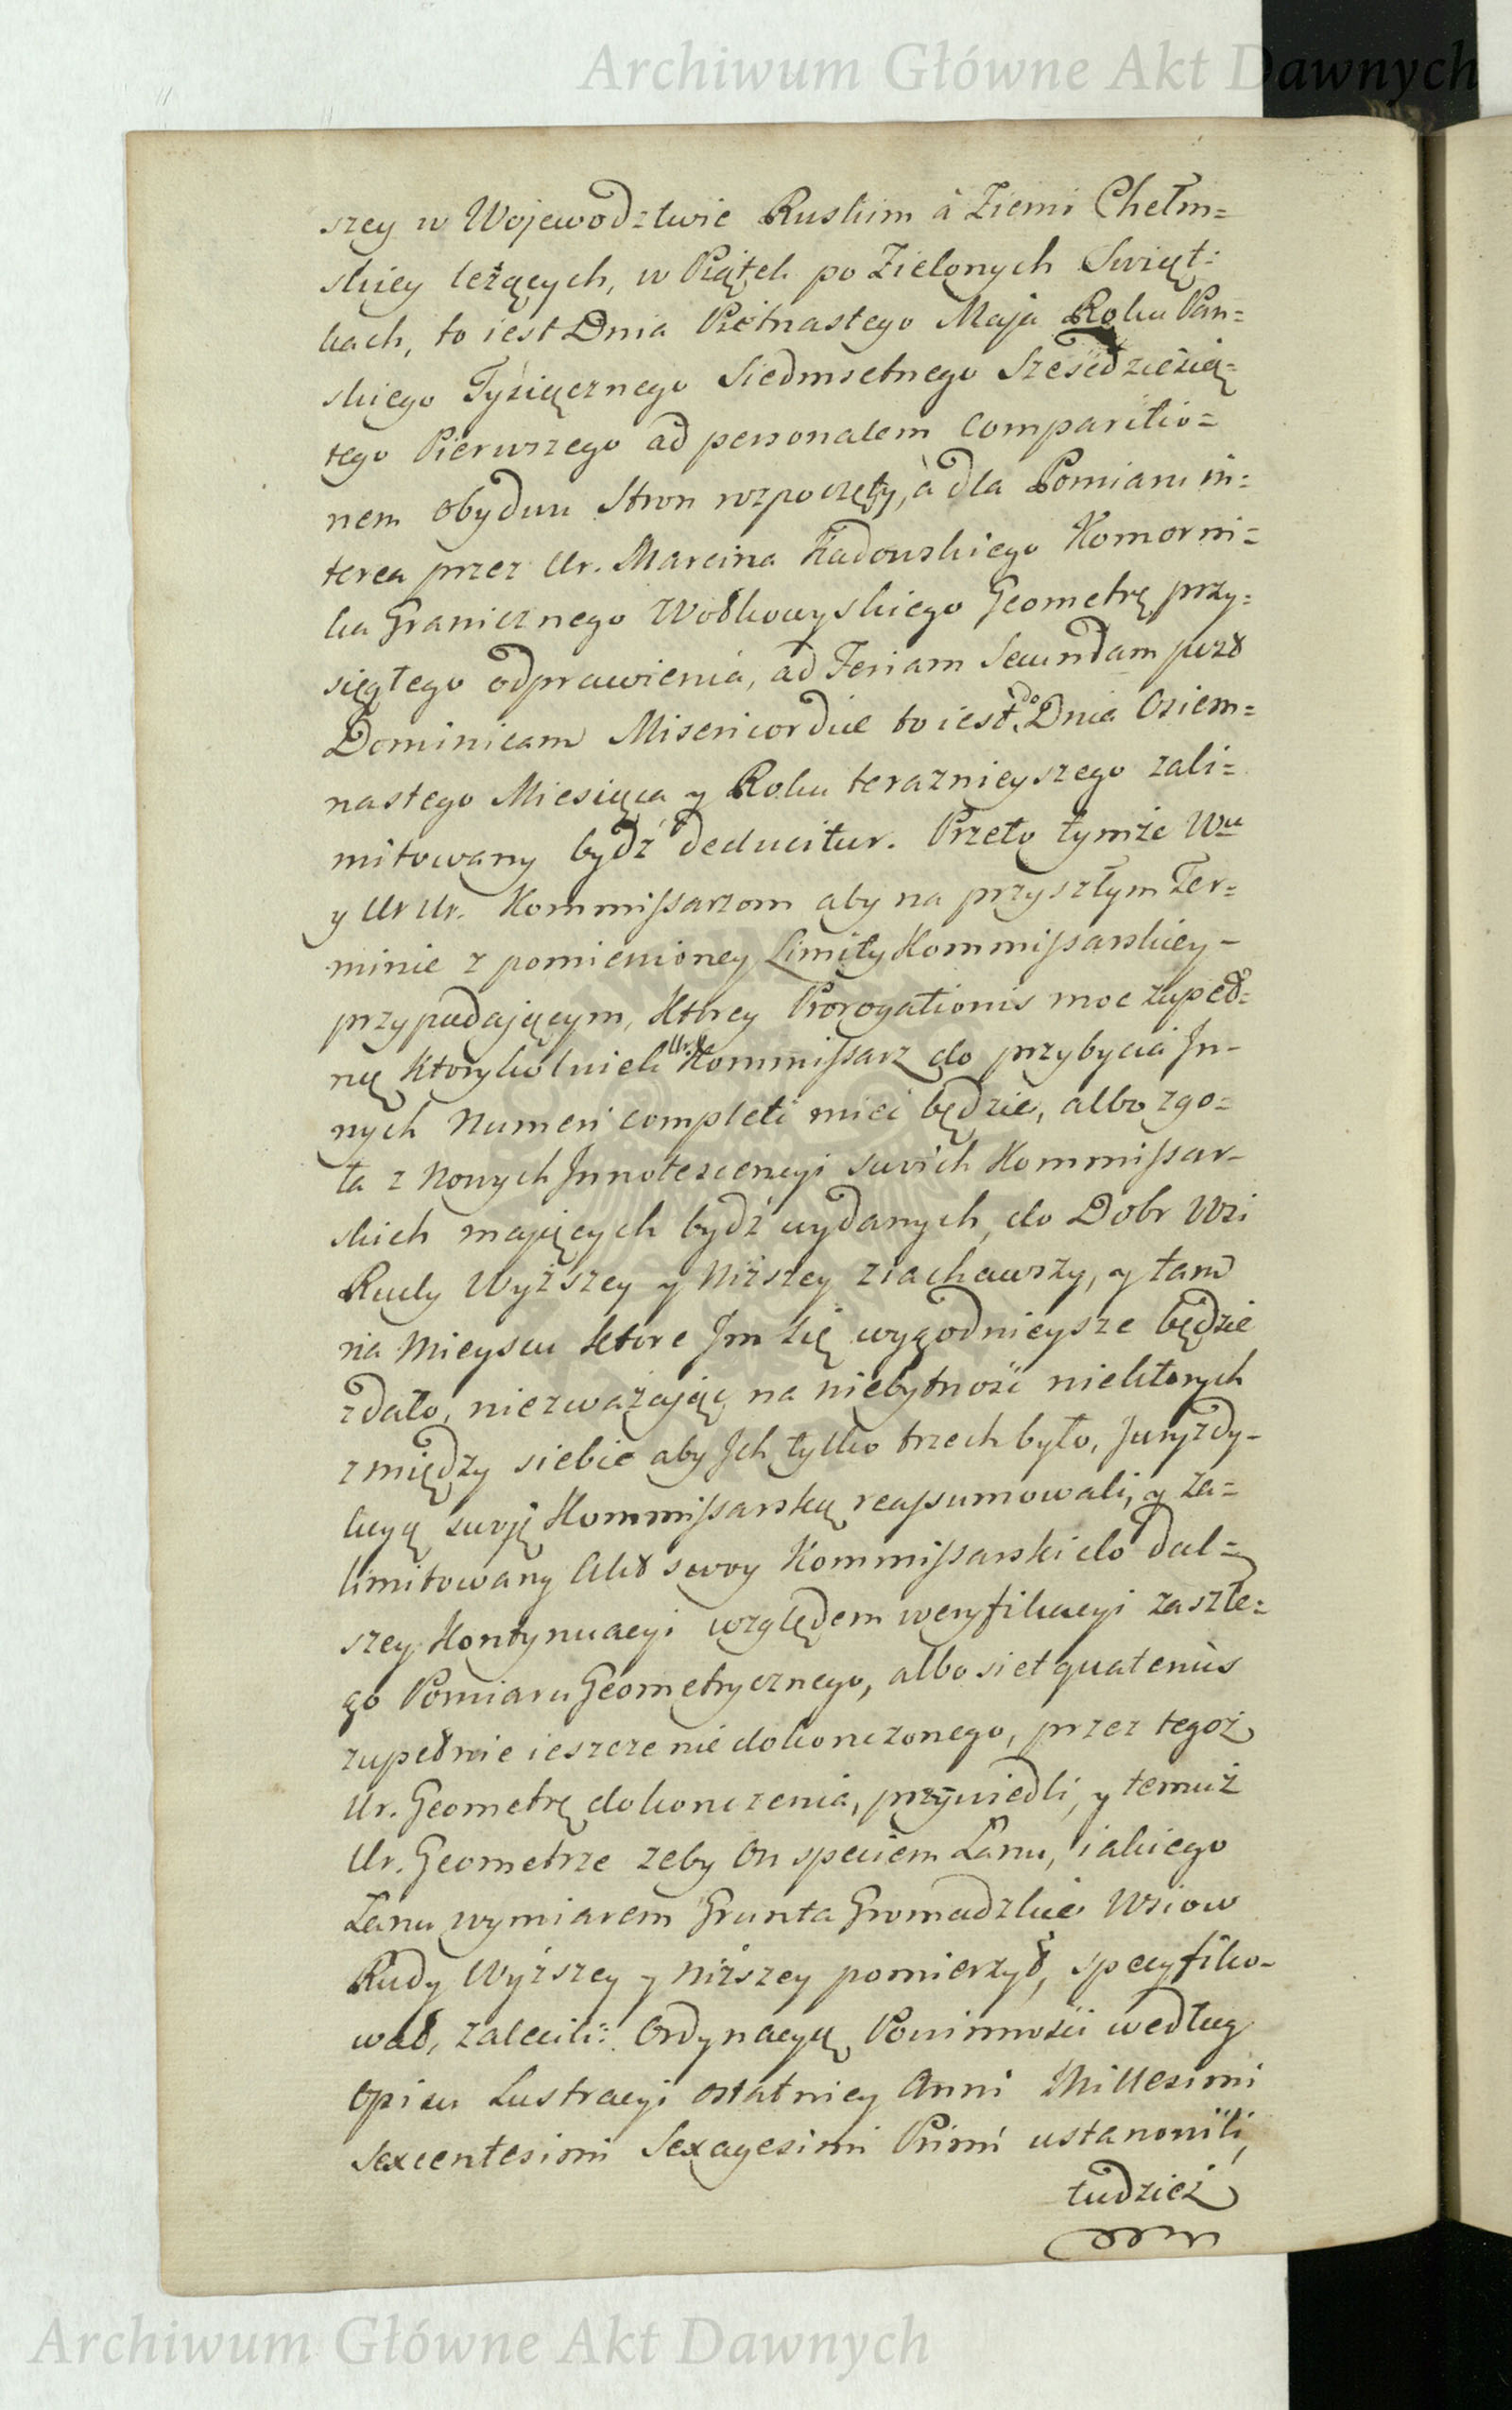 Archiwum Główne Akt Dawnych
szey w Wojewodztwie Ruskim à Ziemi Chełm=
skiey leżących, w Piątek po Zielonych Swięt:
kach, to iest Dnia Piętnastego Maja Roku Pan=
skiego Tysiącznego Siedmsetnego Sześćdziesią=
tego Pierwszego ad personalem comparitio=
nem obydwu Stron rozpoczęty, à dla Pomiaru in=
terea przez Ur. Marcina Komorni=
ka Granicznego Wołkowyskiego Geometrę przy=
sięgłego odprawienia, ad Feriam Secundam post
Dominicam Misericordiæ to iest do Dnia Osiem=
nastego Miesiąca y Roku teraznieyszego zali=
mitowany bydź deducitur. Przeto tymże Wu
y Ur Ur. Kommissarzom aby na przyszłym Ter=
minie z pomienioney Limity Kommissarskiey -
przypadającym, ktorey Prorogationis moc zupeł=
ną ktorykolwiek Ur. Kommissarz do przybycia In-
nych Numeri completi mieć będzie, albo zgo=
ła z Nowych Innotescencyi swoich Kommissar-
skich mających bydź wydanych, do Dobr Wsi
Rudy Wyższey y Niższey ziachawszy, y tam
na Mieyscu ktore Im się wygodnieysze będzie
zdało, niezważając na niebytność niektorych
z między siebie aby Ich tylko trzech było, Juryzdy-
kcyą swoję Kommissarską reassumowali, y za=
limitowany Akt swoy Kommissarski do dal=
szey Kontynuacyi względem weryfikacyi zaszłe=
go Pomiaru Geometrycznego, albo si et quatenùs
zupełnie ieszcze nie dokonczonego, przez tegoż
Ur. Geometrę dokonczenia, przywiedli, y temuż
Ur. Geometrze zeby On speciem Łanu, iakiego
Łanu wymiarem Grunta Gromadzkie Wsiow
Rudy Wyższey y Niższey pomierzył, specyfiko-
wał, zalecili: Ordynacyą Powinności według
Opisu Lustracyi ostatniey Anni Millesimi
Sexcentesimi Sexagesimi Primi ustanowili,
tudzież
Archiwum Główne Akt Dawnych